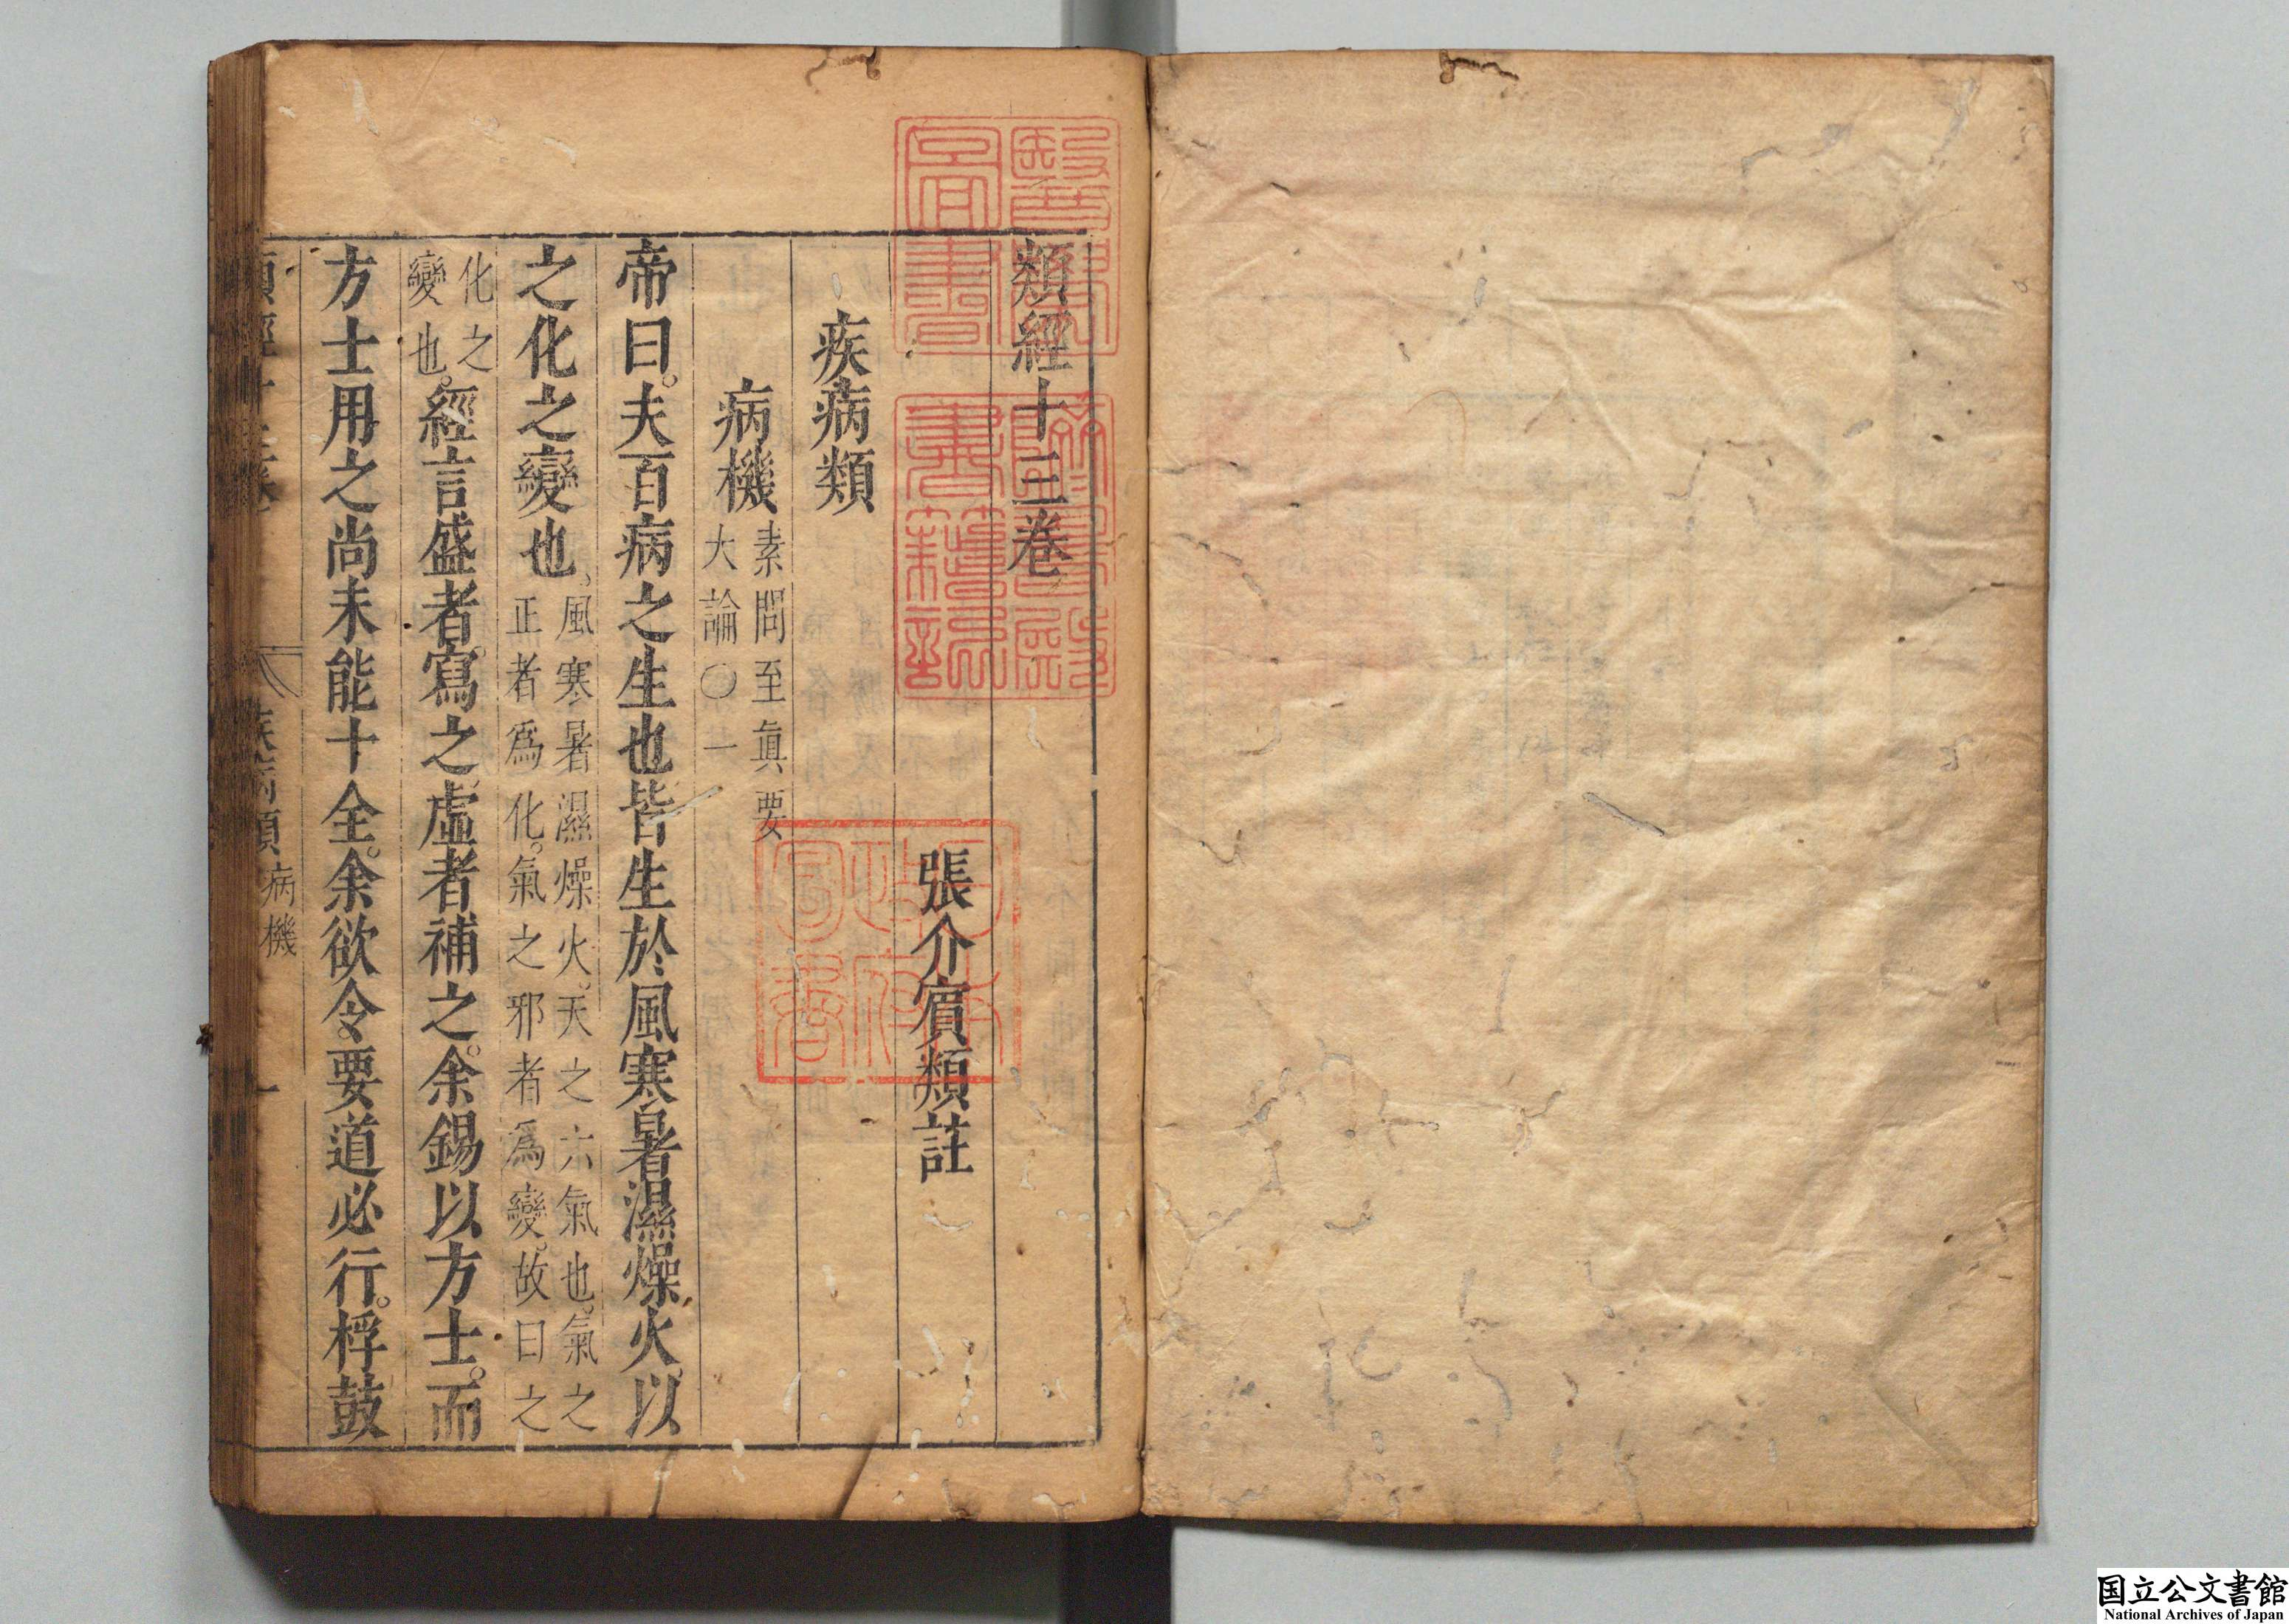 類經十三卷
張介賔類註
疾病類
病機素問至眞要大論○一
帝曰。夫百病之生也皆生於風寒暑濕燥火。以
之化之變也。風寒暑濕燥火。天之六氣也。氣之正者爲化。氣之邪者爲變。故曰之
化之變也。經言盛者寫之。虛者補之。余錫以方士。而
方士用之尚未能十全。余欲令要道必行。桴鼓
疾病類 病機 一
国立公文書館
National Archives of Japan